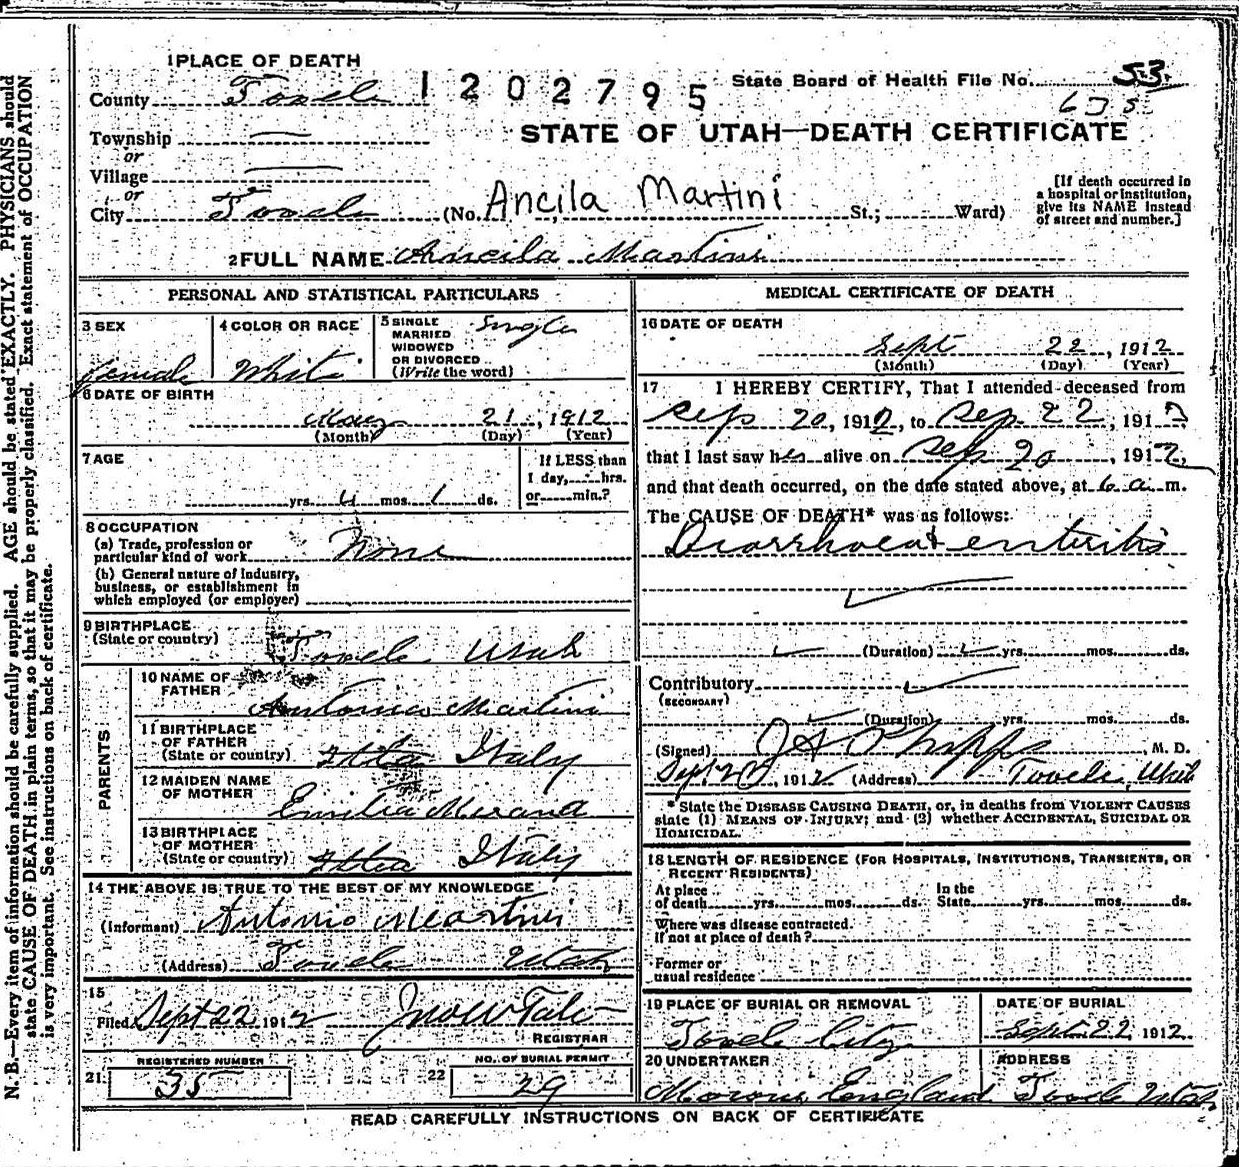 1 PLACE OF DEATH
County Tooele
1202795
State Board of Health File No. 53
635
Township —
or
Village —
or
City Tooele (No. Ancila Martini St.; Ward)
STATE OF UTAH—DEATH CERTIFICATE
[If death occurred in
a hospital or institution,
give its NAME instead
of street and number.]
2 FULL NAME Ancila Martini
PERSONAL AND STATISTICAL PARTICULARS
3 SEX
female
4 COLOR OR RACE
White
5 SINGLE
MARRIED
WIDOWED
OR DIVORCED
(Write the word)
Single
6 DATE OF BIRTH
May 21, 1912
(Month) (Day) (Year)
7 AGE
yrs. 4 mos. 1 ds.
If LESS than
1 day, hrs.
or min.?
8 OCCUPATION
(a) Trade, profession or
particular kind of work None
(b) General nature of industry,
business, or establishment in
which employed (or employer)
9 BIRTHPLACE
(State or country) Tooele Utah
PARENTS
10 NAME OF
FATHER
Antonio Martini
11 BIRTHPLACE
OF FATHER
(State or country) Italy
12 MAIDEN NAME
OF MOTHER
Emilia Merana
13 BIRTHPLACE
OF MOTHER
(State or country) Italy
14 THE ABOVE IS TRUE TO THE BEST OF MY KNOWLEDGE
(Informant) Antonio Martini
(Address) Tooele Utah
15
Filed Sept 22 1912 Jno W Tate
REGISTRAR
REGISTERED NUMBER
21 35
NO. OF BURIAL PERMIT
22 29
MEDICAL CERTIFICATE OF DEATH
16 DATE OF DEATH
Sept 22, 1912
(Month) (Day) (Year)
17 I HEREBY CERTIFY, That I attended deceased from
Sep 20, 1912, to Sep 22, 1912
that I last saw her alive on Sep 20, 1912,
and that death occurred, on the date stated above, at 6 a. m.
The CAUSE OF DEATH* was as follows:
Diarrhoea & enteritis
(Duration) yrs. mos. ds.
Contributory
(SECONDARY)
(Duration) yrs. mos. ds.
(Signed) J A Phipps, M. D.
Sept 20, 1912 (Address) Tooele, Utah
*State the DISEASE CAUSING DEATH, or, in deaths from VIOLENT CAUSES
state (1) MEANS OF INJURY; and (2) whether ACCIDENTAL, SUICIDAL OR
HOMICIDAL.
18 LENGTH OF RESIDENCE (FOR HOSPITALS, INSTITUTIONS, TRANSIENTS, OR
RECENT RESIDENTS)
At place
of death yrs. mos. ds.
In the
State yrs. mos. ds.
Where was disease contracted.
If not at place of death?
Former or
usual residence
19 PLACE OF BURIAL OR REMOVAL
Tooele City
DATE OF BURIAL
Sept. 22, 1912
20 UNDERTAKER
England
ADDRESS
Tooele Utah
READ CAREFULLY INSTRUCTIONS ON BACK OF CERTIFICATE
N. B.—Every item of information should be carefully supplied. AGE should be stated EXACTLY. PHYSICIANS should
state CAUSE OF DEATH in plain terms, so that it may be properly classified. Exact statement of OCCUPATION
is very important. See instructions on back of certificate.